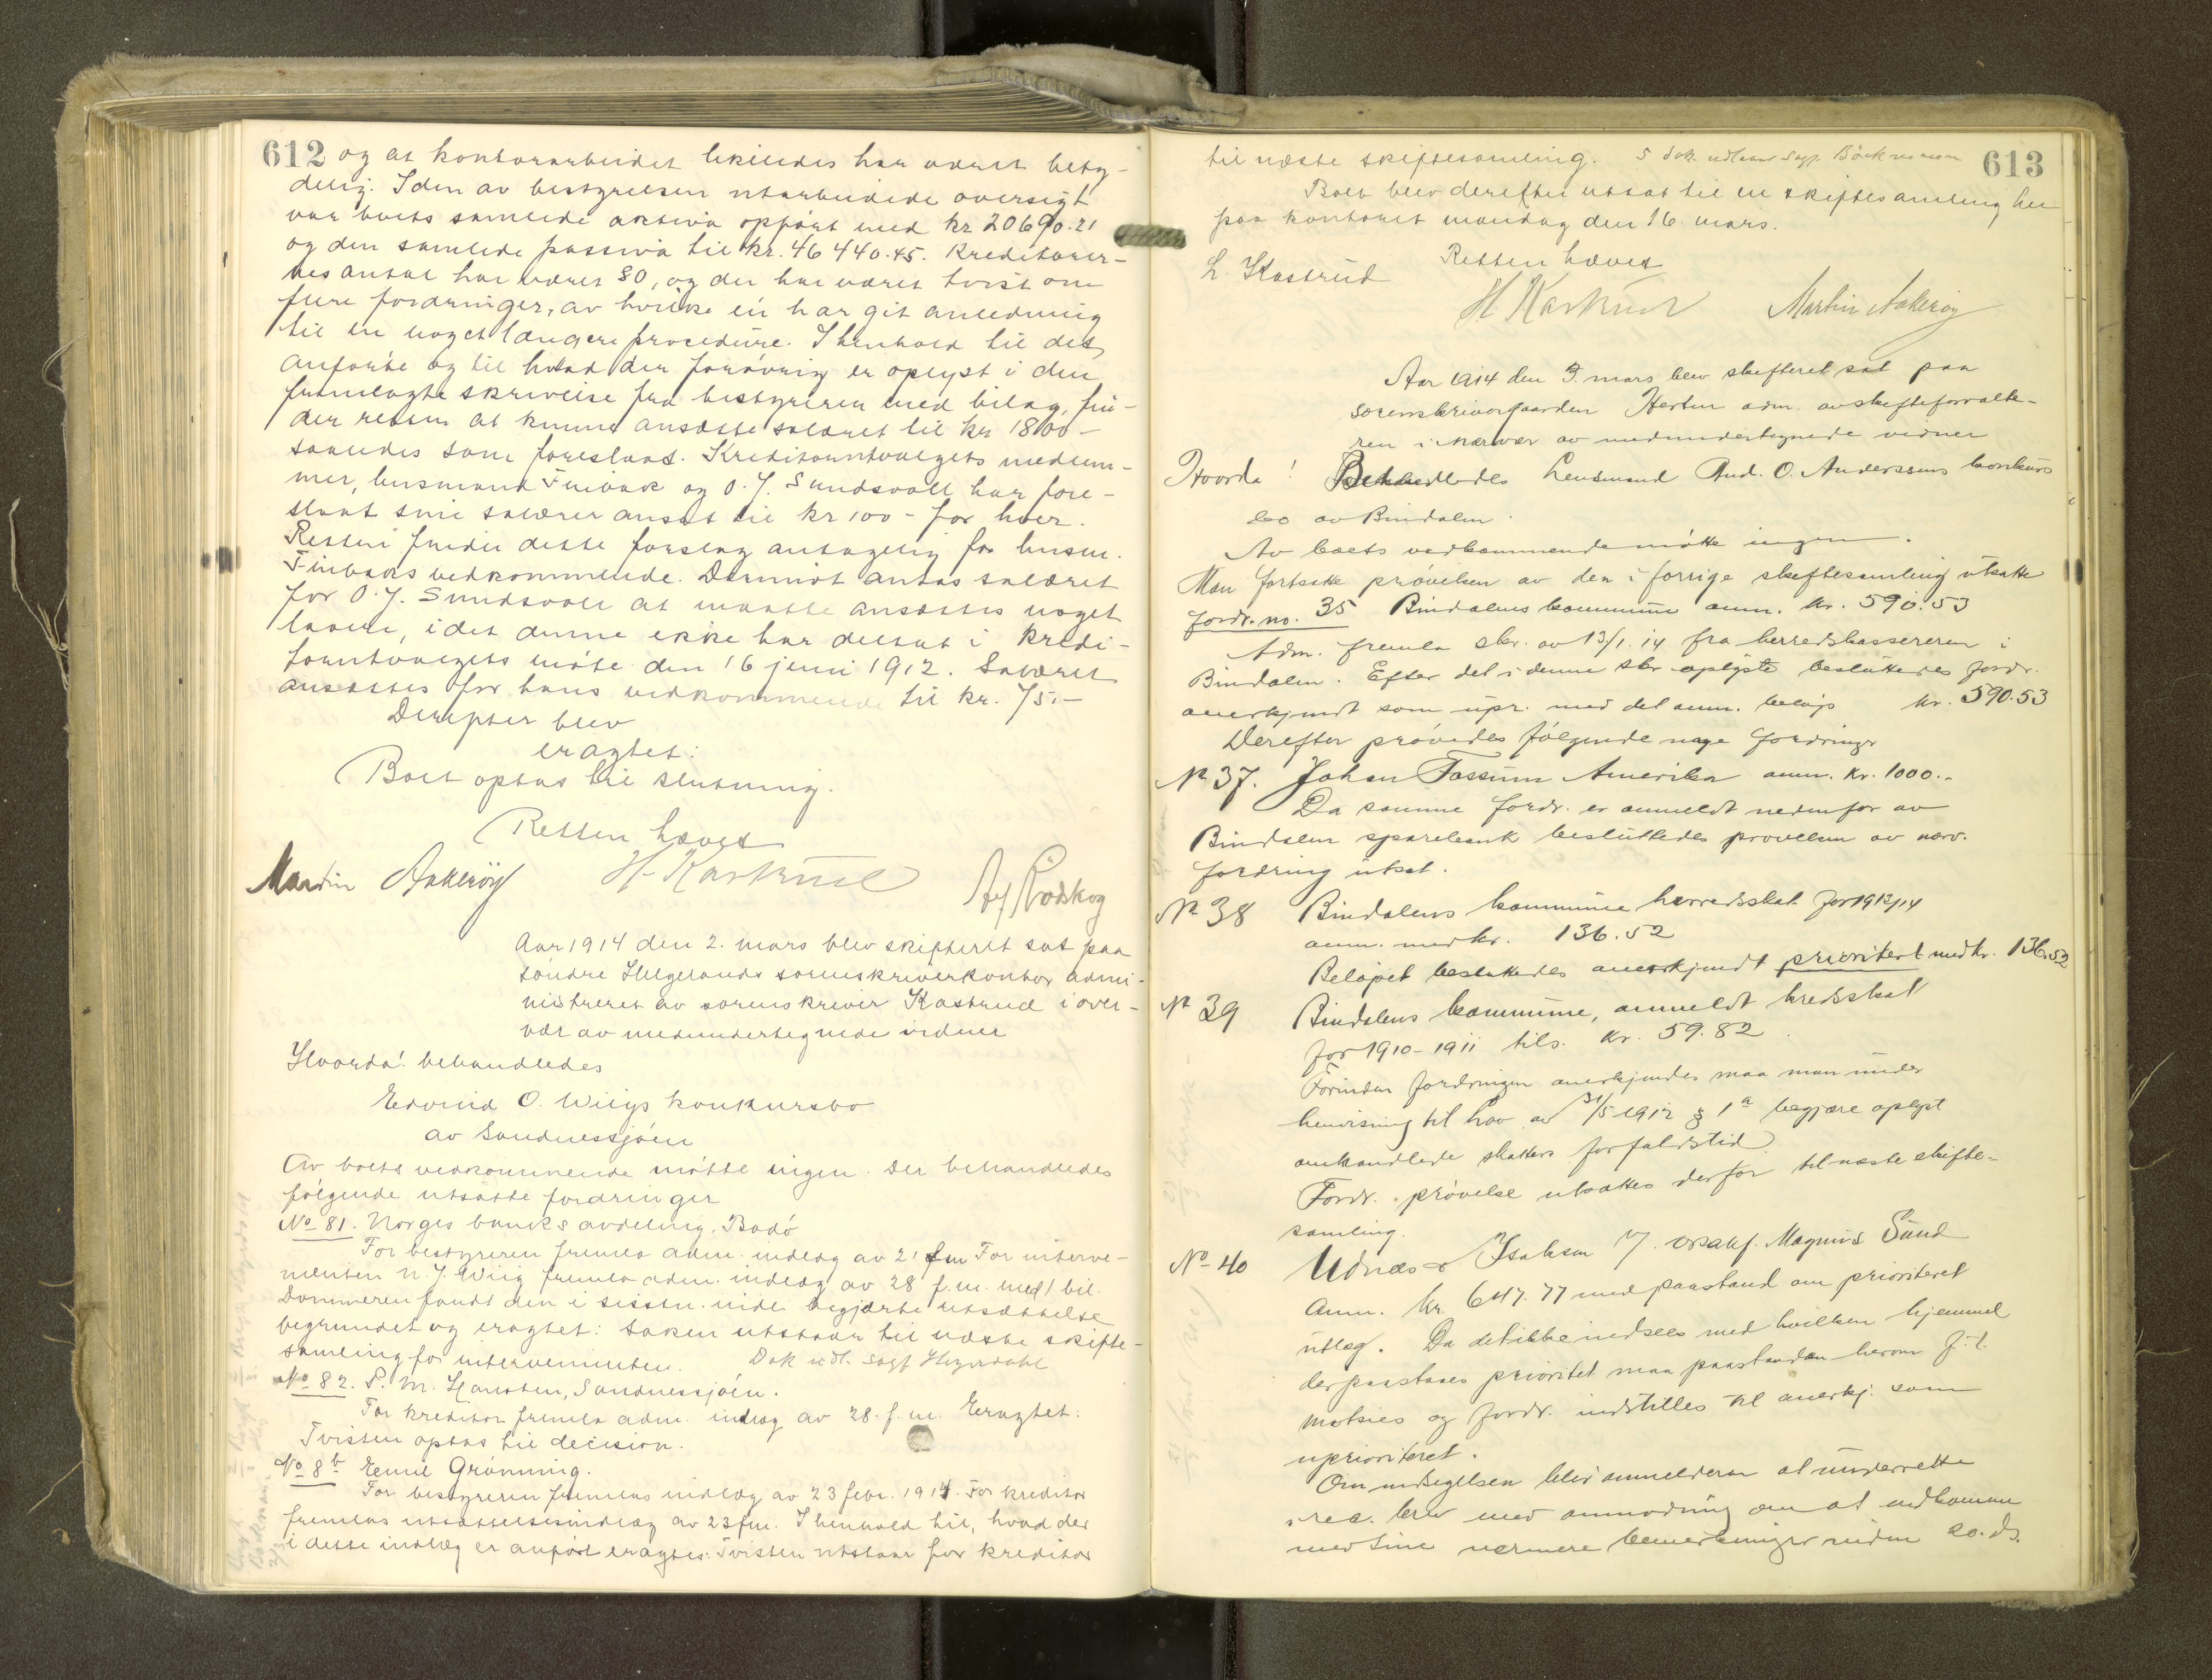 612 og at kontorarbeidet likeledes har været bety-
delig. I den av bestyrelsen utarbeidede oversigt
var boets samlede aktiva opført med kr 20690.21
og den samlede passiva til kr. 46 440.45. Kreditorer-
nes antal har været 80, og der har været tvist om
flere fordringer, av hvilke én har git anledning
til en noget længere procedure. I henhold til det
anførte og til hvad der forøvrig er oplyst i den
fremlagte skrivelse fra bestyreren med bilag, fin-
der retten at kunne ansætte salæret til kr 1800 -
saaledes som foreslaat. Kreditorutvalgets medlem-
mer, lensmand Finbak og O. J. Sundsvoll har fore-
slaat sine salærer ansat til kr 100 - for hver.
Retten finder dette forslag antagelig for lensm.
Finbaks vedkommende. Derimot antas salæret
for O. J. Sundsvoll at maatte ansættes noget
lavere, idet denne ikke har deltat i kredi-
torutvalgets møte den 16 juni 1912. Salæret
ansættes for hans vedkommende til kr. 75.-
Derefter blev
eragtet:
Boet optas til slutning.
Retten hævet
Martin Aakerøy H. Kastrud Rødskog
Aar 1914 den 2. mars blev skifteret sat paa
søndre Helgelands sorenskriverkontor admi-
nistreret av sorenskriver Kastrud i over-
vær av medundertegnede vidner
Hvorda! behandledes
Edvind O. Wiigs konkursbo
av Sandnessjøen
Av boets vedkommende møtte ingen. Der behandledes
følgende utsatte fordringer
No 81. Norges banks avdeling, Bodø
For bestyreren fremla adm. indlæg av 21 f.m. For interve-
nienten N. J. Wiig fremla adm. indlæg av 28 f.m. med 1 bil.
Dommeren fandt den i sisstn. indl. begjærte utsættelse
begrundet og eragtet: Saken utstaar til næste skifte-
samling for intervenienten. Dok utl. sagf
No 82. P. M. Hansten, Sandnessjøen.
For kreditor fremla adm. indlæg av 28. f. m. Eragtet:
Tvisten optas til decision.
No 8b Emil Grønning.
For bestyreren fremlas indlæg av 23 febr. 1914. For kreditor
fremlas utsættelsesindlæg av 23 f.m. I henhold til, hvad der
i dette indlæg er anført eragtes: Tvisten utstaar for kreditor
til næste skiftesamling. 5 dok. utlaant sagf. Böckmann 613
Boet blev derefter utsat til en skiftesamling her
paa kontoret mandag den 16. mars.
Retten hævet
L. Kastrud
H. Kastrud Martin Aakerøy
Aar 1914 den 3. mars blev skifteret sat paa
sorenskrivergaarden Herten adm. av skifteforvalte-
ren i nærvær av medundertegnede vidner
Hvorda! Behandledes Lensmand And. O. Anderssens konkurs
bo av Bindalen.
Av boets vedkommende møtte ingen.
Man fortsatte prøvelsen av den i forrige skiftesamling utsatte
fordr. no. 35 Bindalens kommune anm. kr. 590.53
Adm. fremla skr. av 13/1.14 fra herredskassereren i
Bindalen. Efter det i denne skr. oplyste besluttedes fordr.
anerkjendt som upr. med det anm. beløp kr. 590.53
Derefter prøvedes følgende nye fordringer
No 37. Johan Fossum Amerika anm. kr. 1000.-
Da samme fordr. er anmeldt nedenfor av
Bindalen sparebank besluttedes prøvelsen av nærv.
fordring utsat.
No 38 Bindalens kommune herredsskat for 1913/14
anm. med kr. 136.52
Beløpet besluttedes anerkjendt prioritert med kr. 136.52
No 39 Bindalens kommune, anmeldt kredsskat
for 1910-1911 tils. kr. 59.82
Førinden fordringen anerkjendes maa man under
henvisning til lov av 31/5 1912 § 1a begjære oplyst
omhandlede skatters forfaldstid.
Fordr. prøvelse utsattes derfor til næste skifte-
samling.
No 40 Udnæs & Isaksen v/. o.r.sakf. Magnus Sund
Anm. kr. 647.77 med paastand om prioriteret
utlæg. Da det ikke indsees med hvilken hjemmel
der paastaaes prioritet maa paastanden herom f.t.
motsies og fordr. indstilles til anerkj. som
uprioriteret.
Om motsigelsen blir anmelderne at underrette
i rec. brev med anmodning om at indkomme
med sine nærmere bemerkninger inden 20. ds.